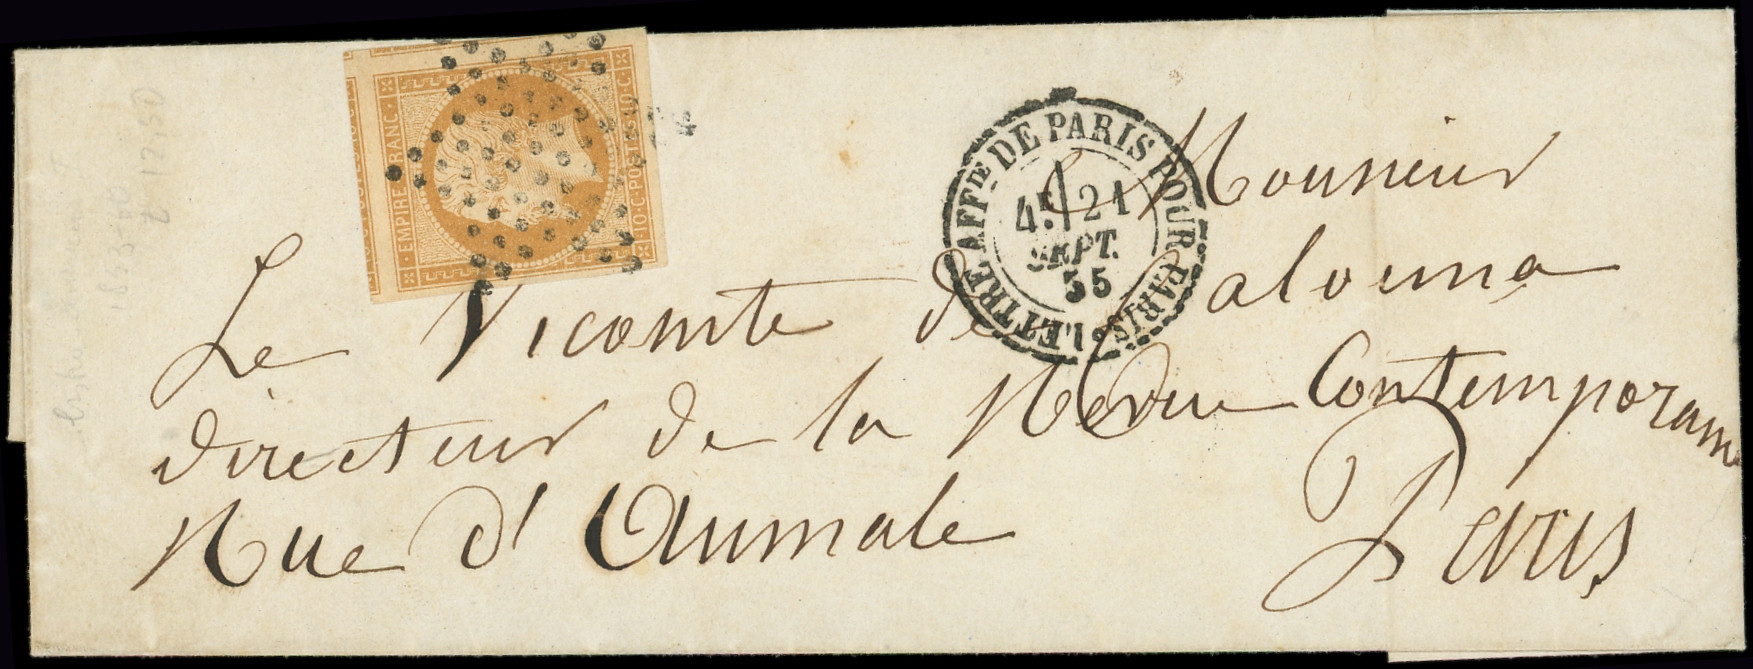 EMPIRE FRANC.
10·C·POSTES·10·C·
LETTRE AFFie. DE PARIS POUR PARIS
4e/ 21
SEPT.
55
Monsieur
Le Vicomte de Calonne
directeur de la Revue Contemporaine
Rue d'Aumale
Paris
1853-60